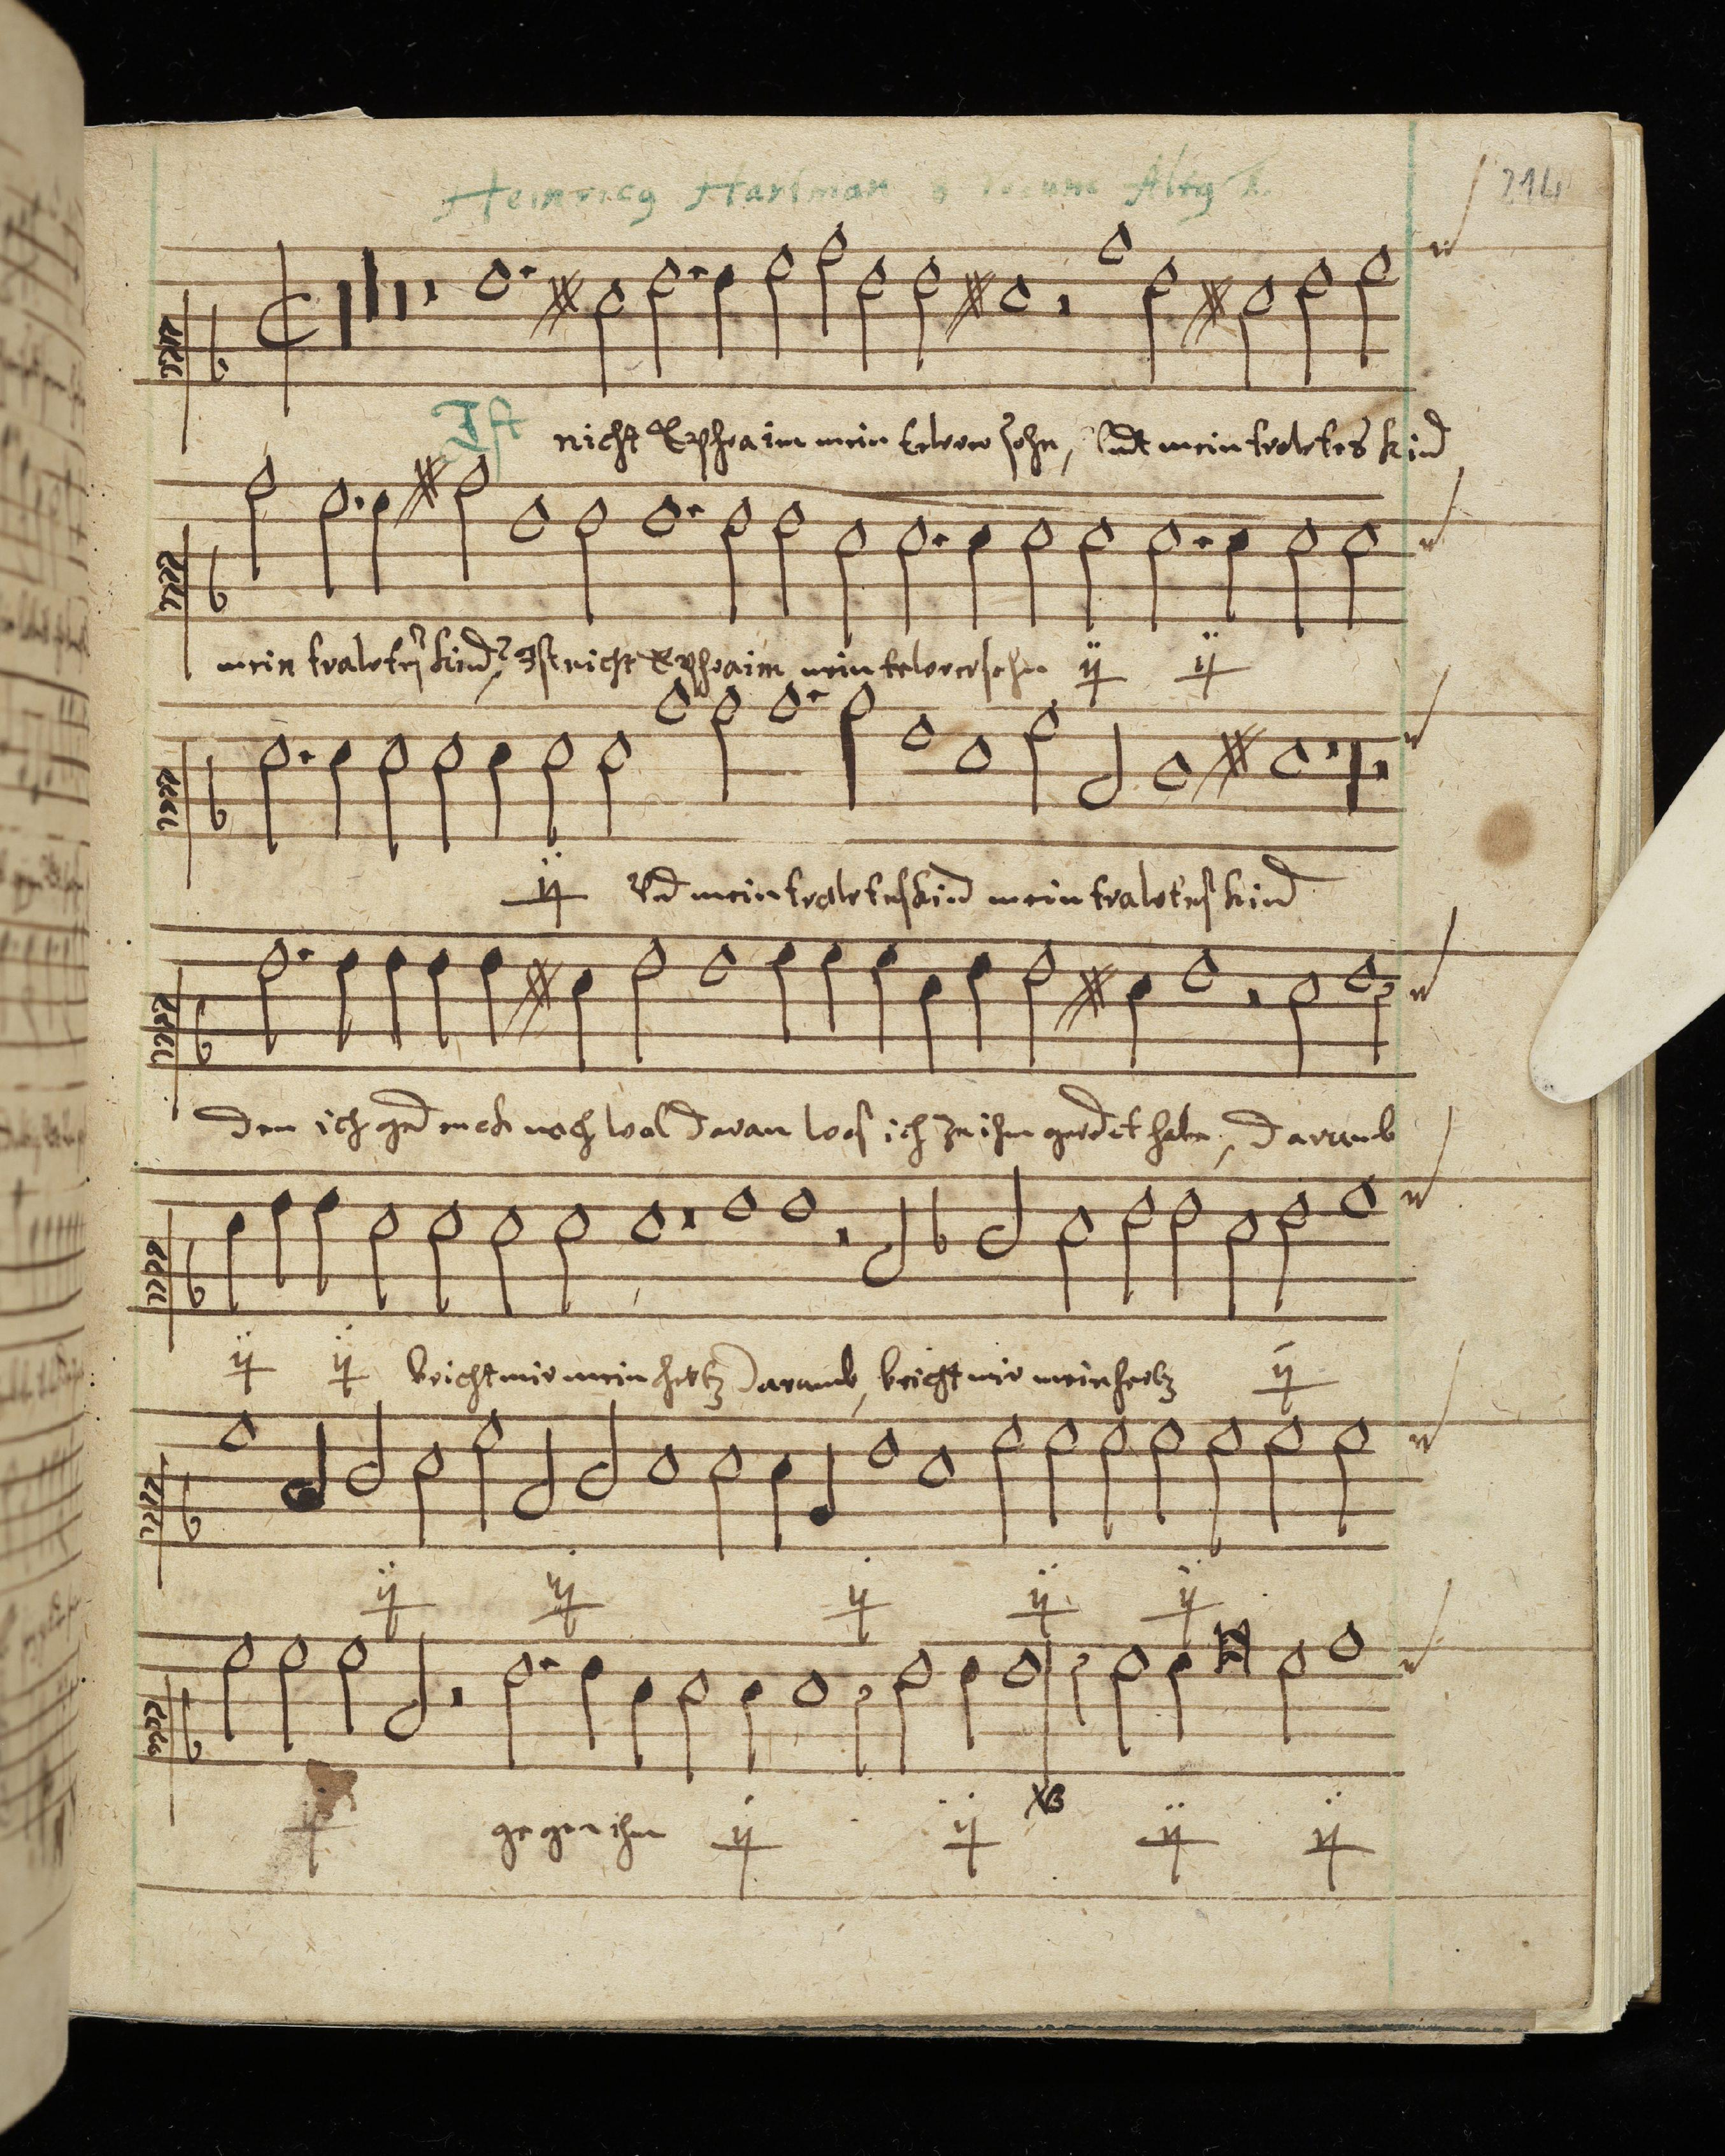 Heinricg Hartman 8 Vocum Altg 1.
214
Ist nicht Ephraim mein tewrer sohn, Vndt mein trawtes kind
mein trawtes kind, Ist nicht Ephraim mein tewrer sohn ij ij
ij Vnd mein trawtes kind mein trawtes kind
Den ich gedenck noch wol daran was ich zu ihm geredet habe, Darumb
ij ij bricht mir mein hertz Darumb, bricht mir mein hertz ij
ij ij ij ij ij
gegen ihm ij ij ij ij